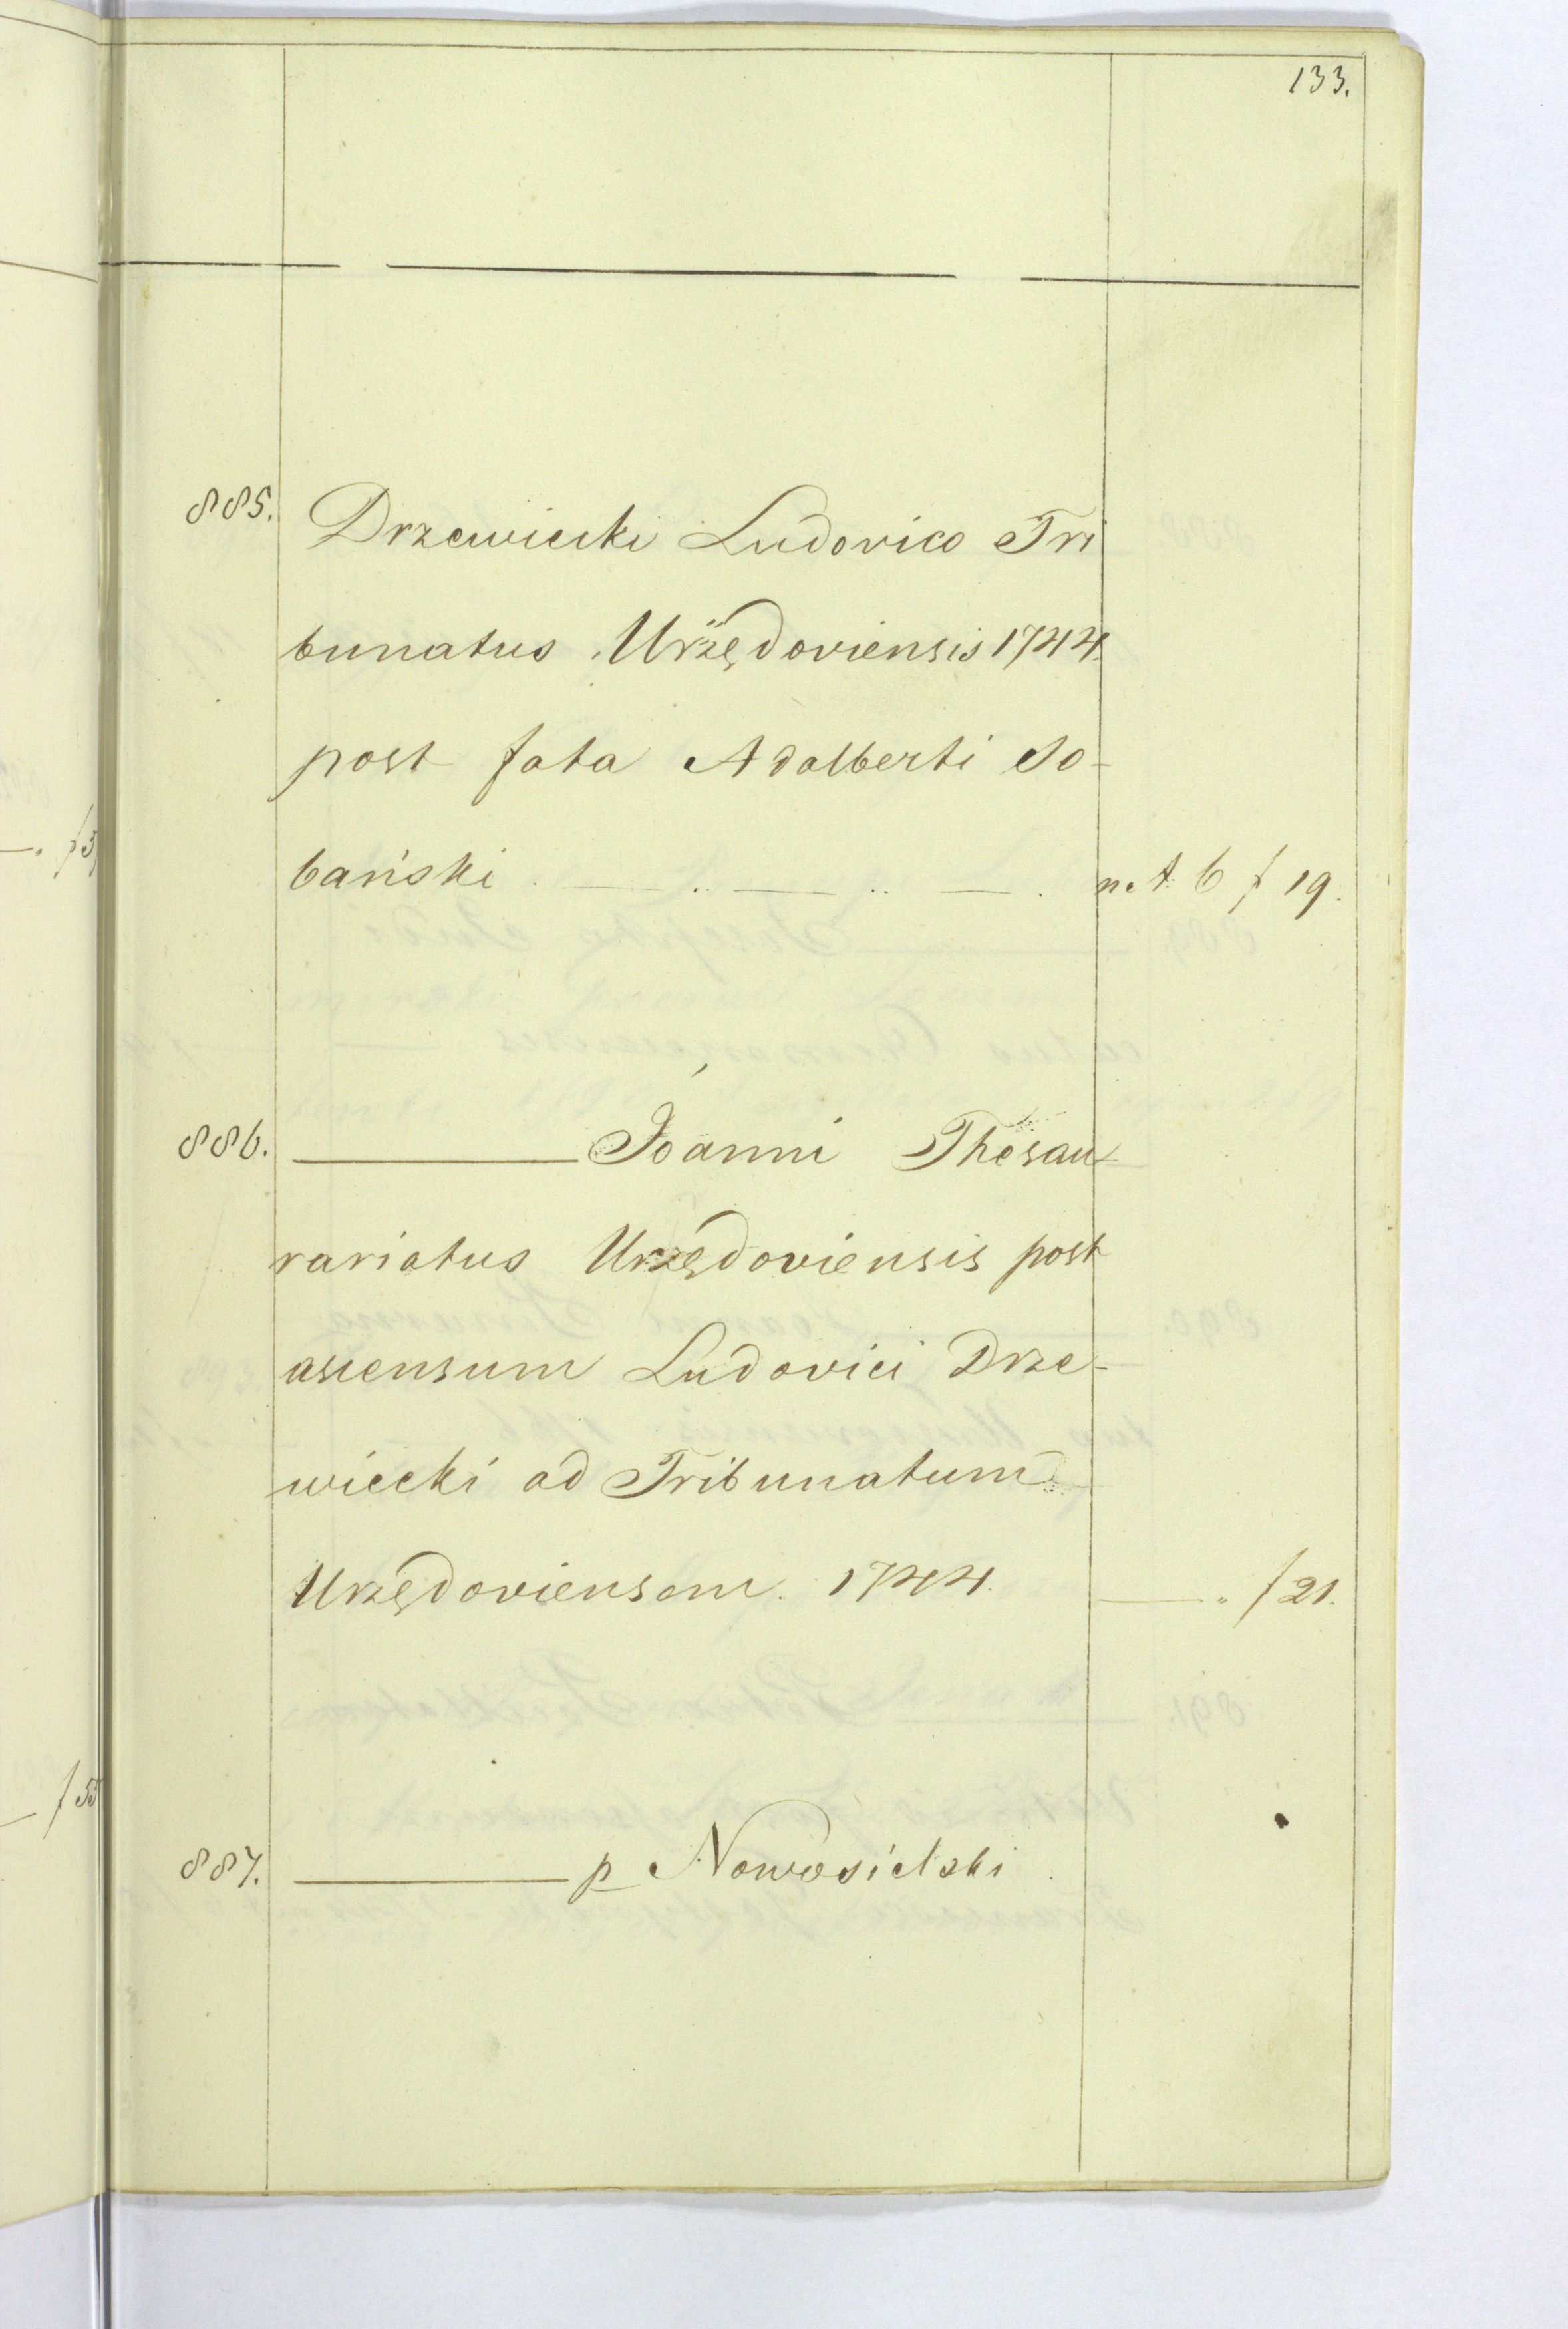 133.
885. Drzewiecki Ludovico Tri
bunatus Urzędoviensis 1744.
post fata Adalberti So-
bański . — .. — .. — . n. A 6 f 19.
886. ——— Joanni Thesau-
rariatus Urzędoviensis post
ascensum Ludovici Drze-
wiecki ad Tribunatum
Urzędoviensem. 1744. — „ f 21.
887. ——— p Nowosielski